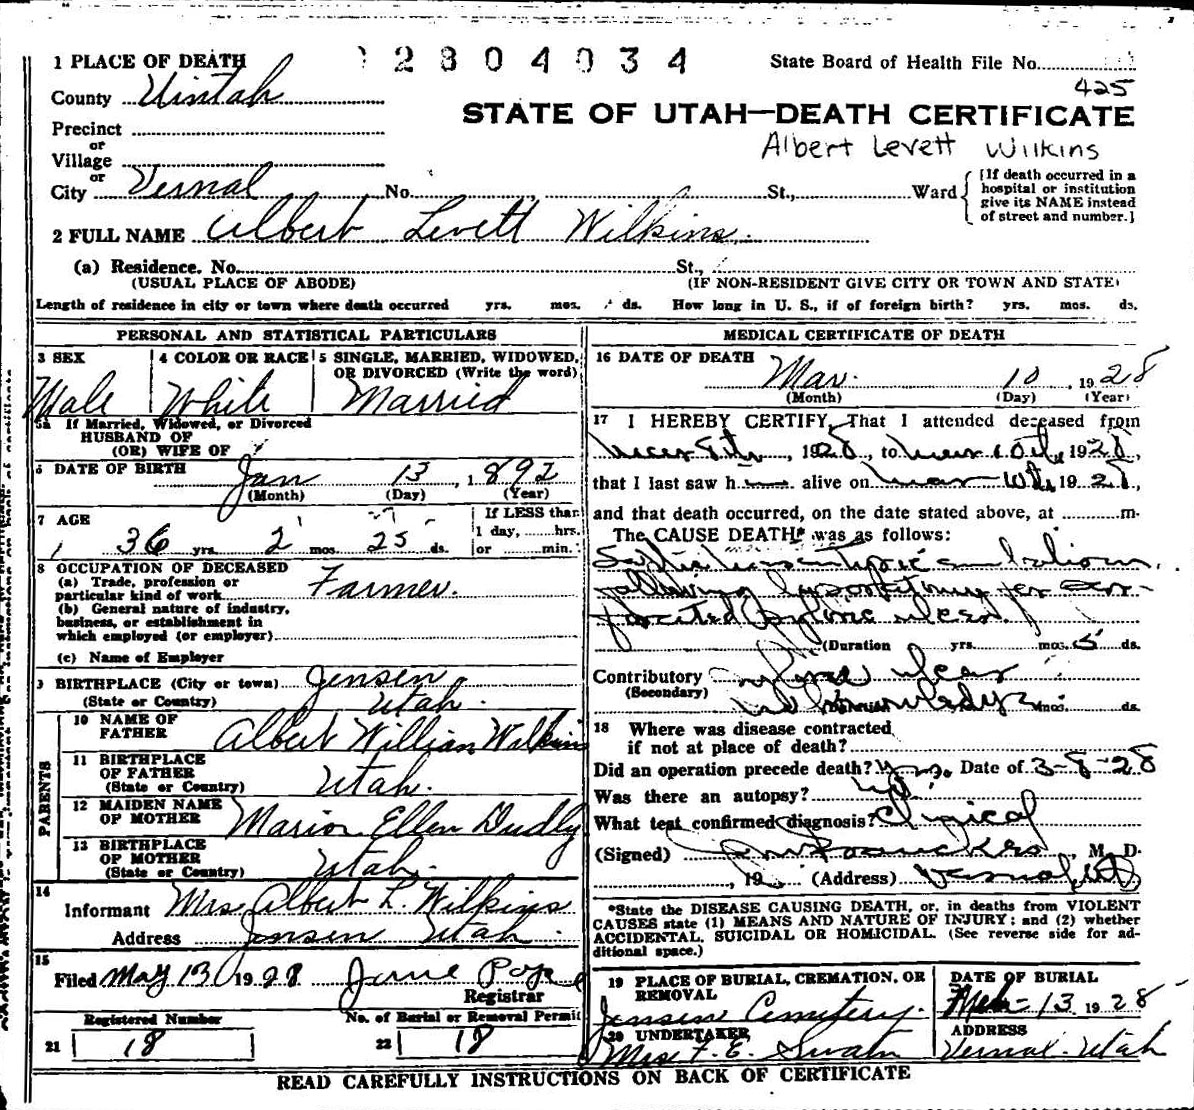 1 PLACE OF DEATH
2804034
State Board of Health File No.
425
County Uintah
STATE OF UTAH—DEATH CERTIFICATE
Precinct
or
Albert Levett Wilkins
Village
or
City Vernal No. St., Ward
[If death occurred in a
hospital or institution
give its NAME instead
of street and number.]
2 FULL NAME Albert Levett Wilkins.
(a) Residence. No. St.,
(USUAL PLACE OF ABODE) (IF NON-RESIDENT GIVE CITY OR TOWN AND STATE)
Length of residence in city or town where death occurred yrs. mos. ds. How long in U. S., if of foreign birth? yrs. mos. ds.
PERSONAL AND STATISTICAL PARTICULARS
3 SEX
Male
4 COLOR OR RACE
White
5 SINGLE, MARRIED, WIDOWED,
OR DIVORCED (Write the word)
Married
5a If Married, Widowed, or Divorced
HUSBAND OF
(OR) WIFE OF
6 DATE OF BIRTH Jan 13, 1892
(Month) (Day) (Year)
7 AGE
36 yrs. 2 mos. 25 ds.
If LESS than
1 day, hrs.
or min.
8 OCCUPATION OF DECEASED
(a) Trade, profession or
particular kind of work Farmer.
(b) General nature of industry,
business, or establishment in
which employed (or employer)
(c) Name of Employer
9 BIRTHPLACE (City or town) Jensen
(State or Country) Utah.
PARENTS
10 NAME OF
FATHER Albert William Wilkins
11 BIRTHPLACE
OF FATHER
(State or Country) Utah.
12 MAIDEN NAME
OF MOTHER Marion Ellen Dudly
13 BIRTHPLACE
OF MOTHER
(State or Country) Utah.
14
Informant Mrs Albert L. Wilkins
Address Jensen Utah.
15
Filed May 13 1928 Jane Pope
Registrar
Registered Number
21 18
No. of Burial or Removal Permit
22 18
MEDICAL CERTIFICATE OF DEATH
16 DATE OF DEATH
Mar. 10, 1928
(Month) (Day) (Year)
17 I HEREBY CERTIFY, That I attended deceased from
8th, 1928, to 10th, 1928,
that I last saw h alive on Mar 10th 1928,
and that death occurred, on the date stated above, at m.
The CAUSE DEATH* was as follows:
following for
ulcer.
(Duration yrs. mos. 5 ds.
Contributory ulcer
(Secondary) mos. ds.
18 Where was disease contracted
if not at place of death?
Did an operation precede death? Yes. Date of 3-8-28
Was there an autopsy?
What test confirmed diagnosis? Clinical
(Signed) , M. D.
, 19 (Address) Vernal, Ut
*State the DISEASE CAUSING DEATH, or, in deaths from VIOLENT
CAUSES state (1) MEANS AND NATURE OF INJURY; and (2) whether
ACCIDENTAL, SUICIDAL OR HOMICIDAL. (See reverse side for ad-
ditional space.)
19 PLACE OF BURIAL, CREMATION, OR
REMOVAL
Jensen Cemetery.
DATE OF BURIAL
Mch-13 1928
20 UNDERTAKER
Mrs F. E. Swain
ADDRESS
Vernal Utah
READ CAREFULLY INSTRUCTIONS ON BACK OF CERTIFICATE